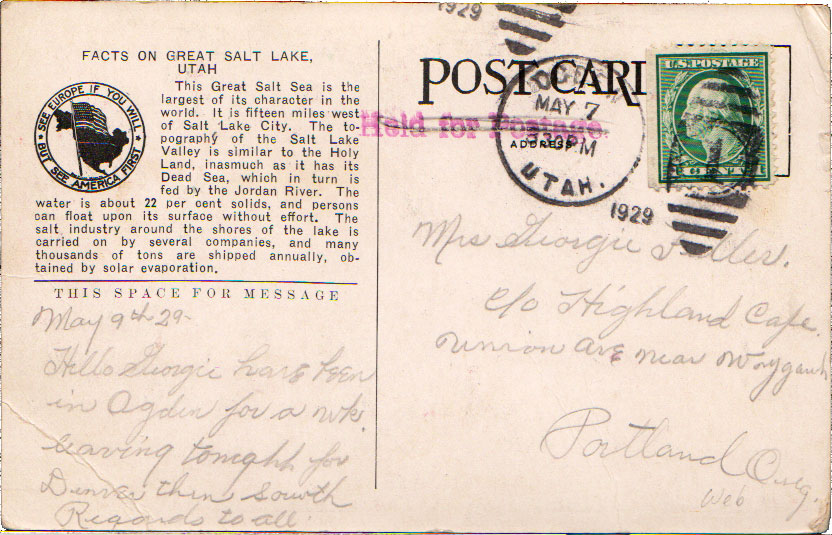 FACTS ON GREAT SALT LAKE,
UTAH
This Great Salt Sea is the
largest of its character in the
world. It is fifteen miles west
of Salt Lake City. The to-
pography of the Salt Lake
Valley is similar to the Holy
Land, inasmuch as it has its
Dead Sea, which in turn is
fed by the Jordan River. The
water is about 22 per cent solids, and persons
can float upon its surface without effort. The
salt industry around the shores of the lake is
carried on by several companies, and many
thousands of tons are shipped annually, ob-
tained by solar evaporation.
SEE EUROPE IF YOU WILL
BUT SEE AMERICA FIRST
THIS SPACE FOR MESSAGE
May 9th 29.
Hello Georgie have been
in Ogden for a wk.
leaving tonight for
Denver then south
Regards to all.
1929
POST CARD
Held for Postage
MAY 7
330PM
UTAH.
ADDRESS
1929
U.S. POSTAGE
1
CENT
Mrs Georgie Fuller.
c/o Highland Cafe.
Union Ave near
Portland Oreg.
Web